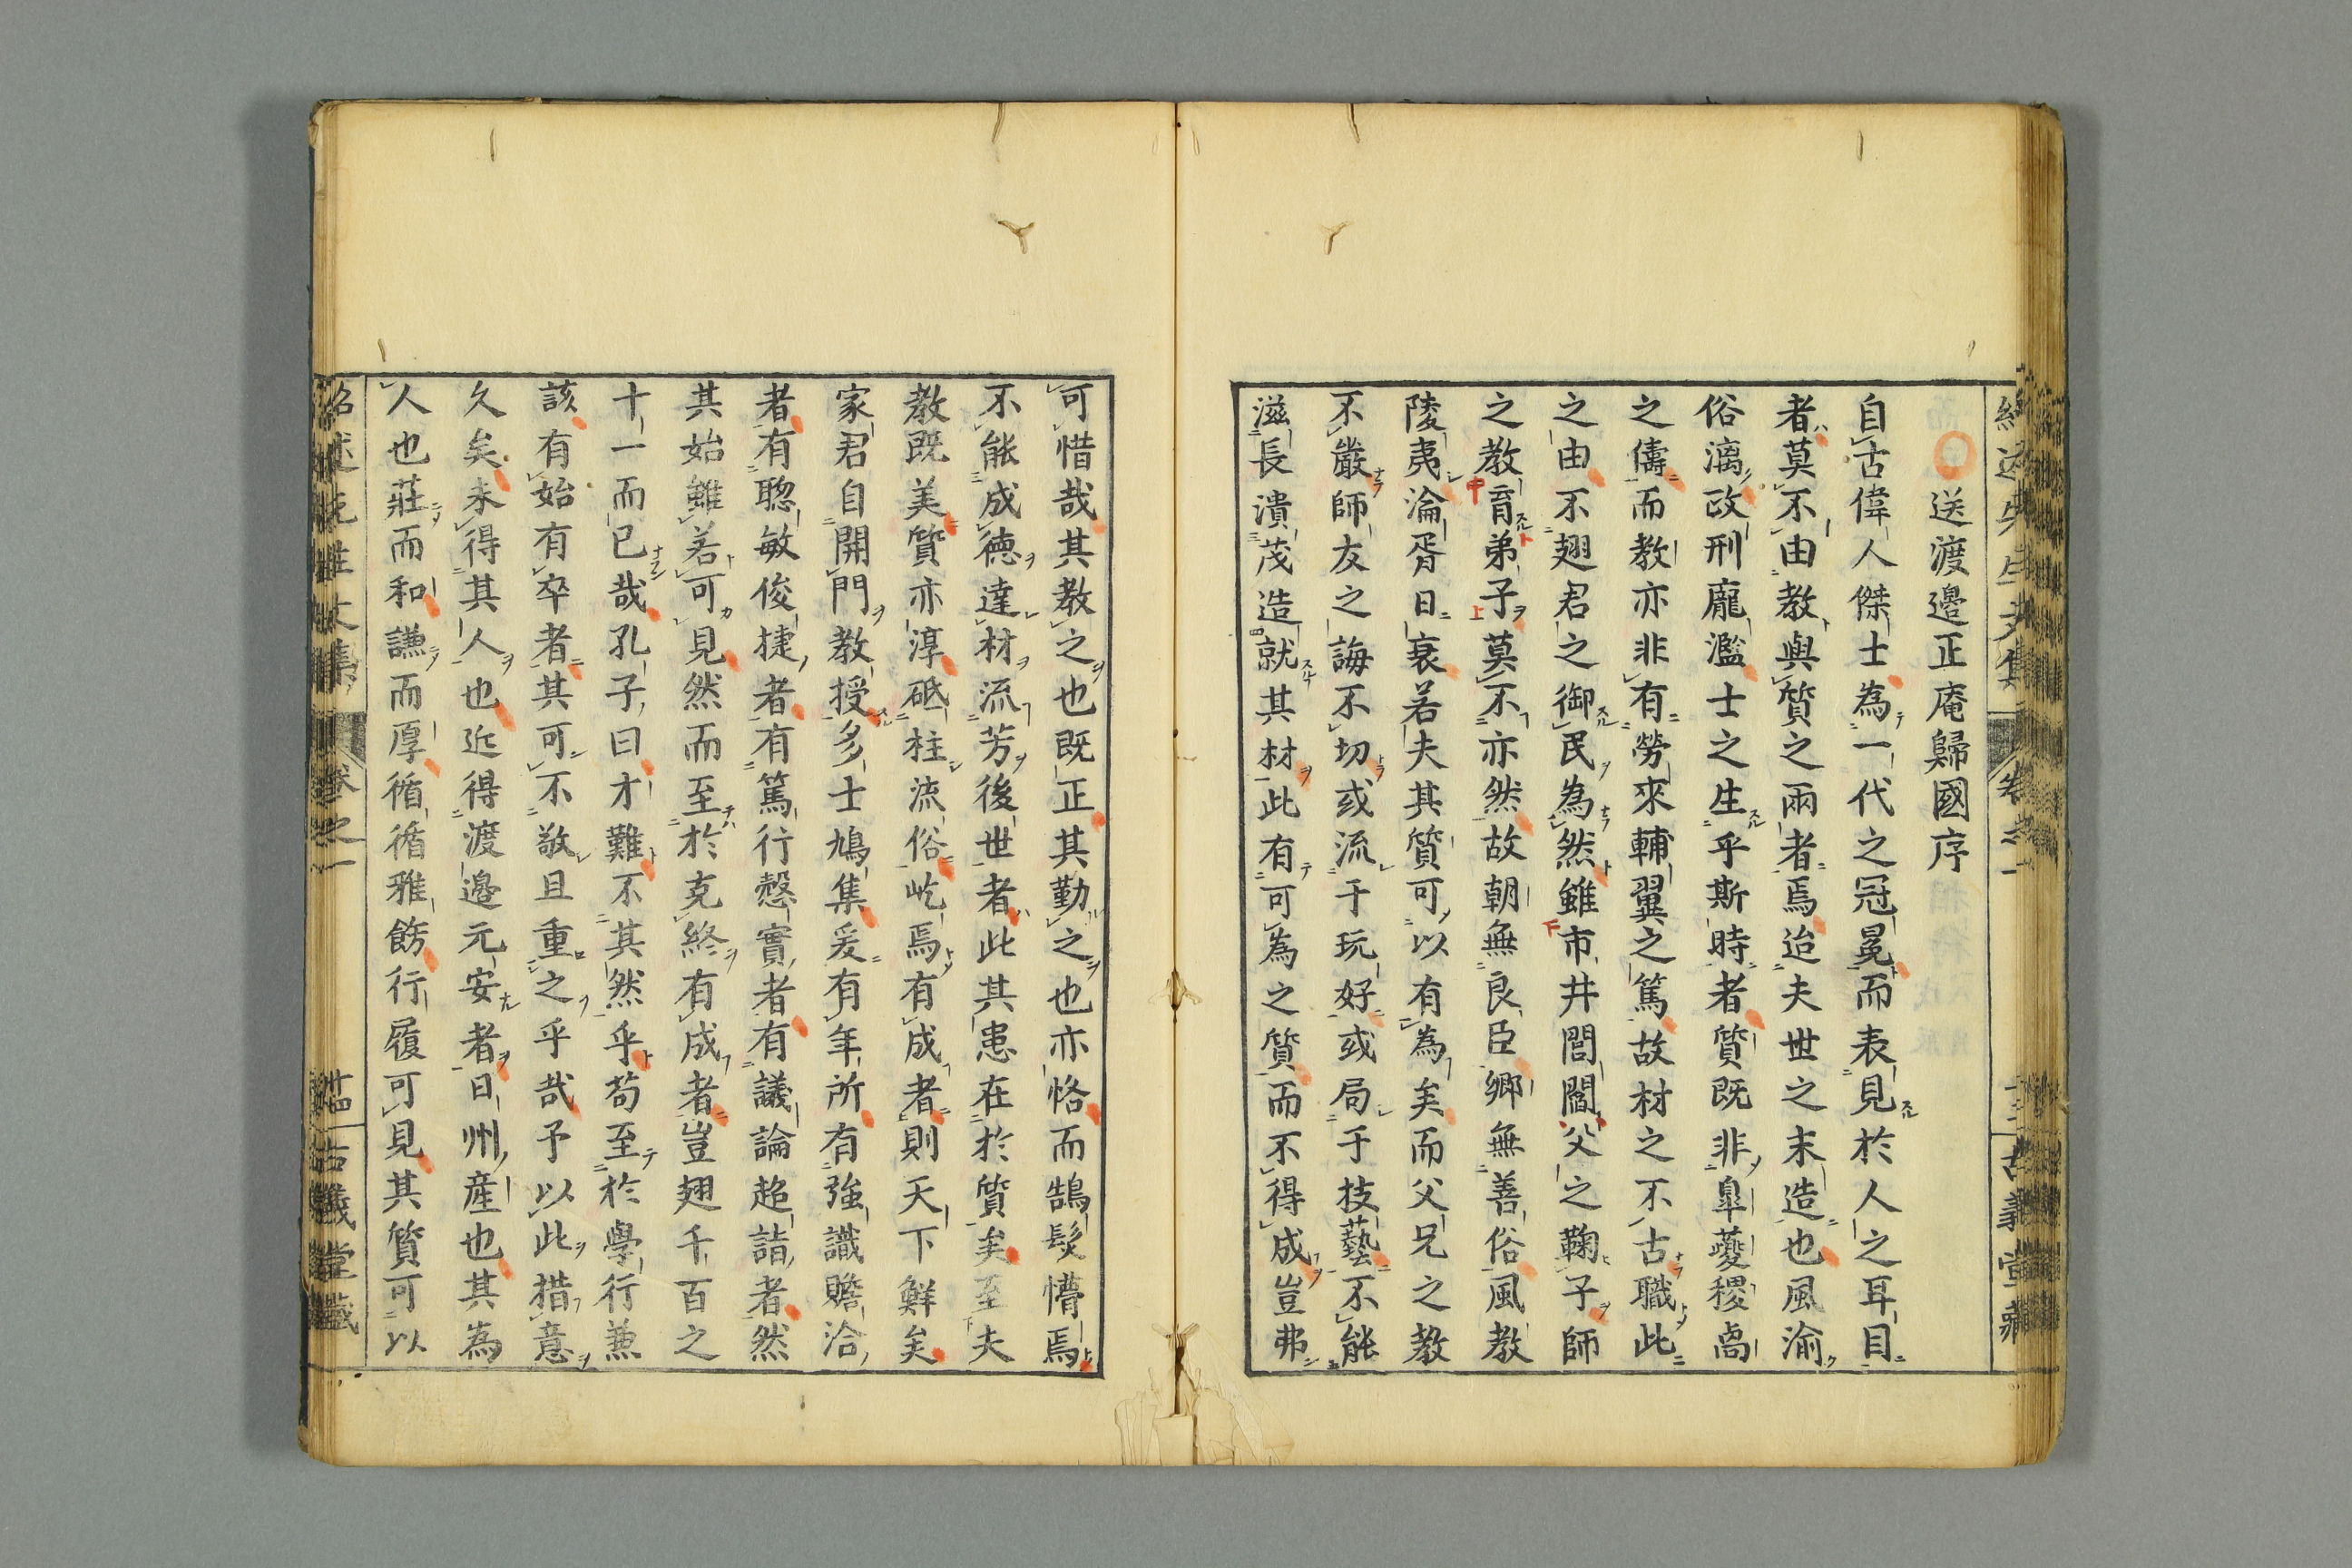 送渡邉正庵歸國序
自古偉人傑士為一代之冠冕而表見於人之耳目
者莫不由教與質之兩者焉迨夫世之末造也風渝
俗漓政刑龐濫士之生乎斯時者質既非皐夔稷卨
之儔而教亦非有勞來輔翼之篤故材之不古職此
之由不翅君之御民為然雖市井閭閻父之鞠子師
之教育弟子莫不亦然故朝無良臣鄉無善俗風教
陵夷淪胥日衰若夫其質可以有為矣而父兄之教
不嚴師友之誨不切或流于玩好或局于技藝不能
滋長潰茂造就其材此有可為之質而不得成豈弗
可惜哉其教之也既正其勤之也亦恪而鵠髮懵焉
不能成德達材流芳後世者此其患在於質矣至夫
教既美質亦淳砥柱流俗屹焉有成者則天下鮮矣
家君自開門教授多士鳩集爰有年所有強識贍洽
者有聰敏俊捷者有篤行愨實者有議論超詣者然
其始雖若可見然而至於克終有成者豈翅千百之
十一而已哉孔子曰才難不其然乎苟至於學行兼
該有始有卒者其可不敬且重之乎哉予以此措意
久矣未得其人也近得渡邉元安者日州產也其為
人也莊而和謙而厚循循雅飭行履可見其質可以
紹述先生文集 卷之一 十四 古義堂藏